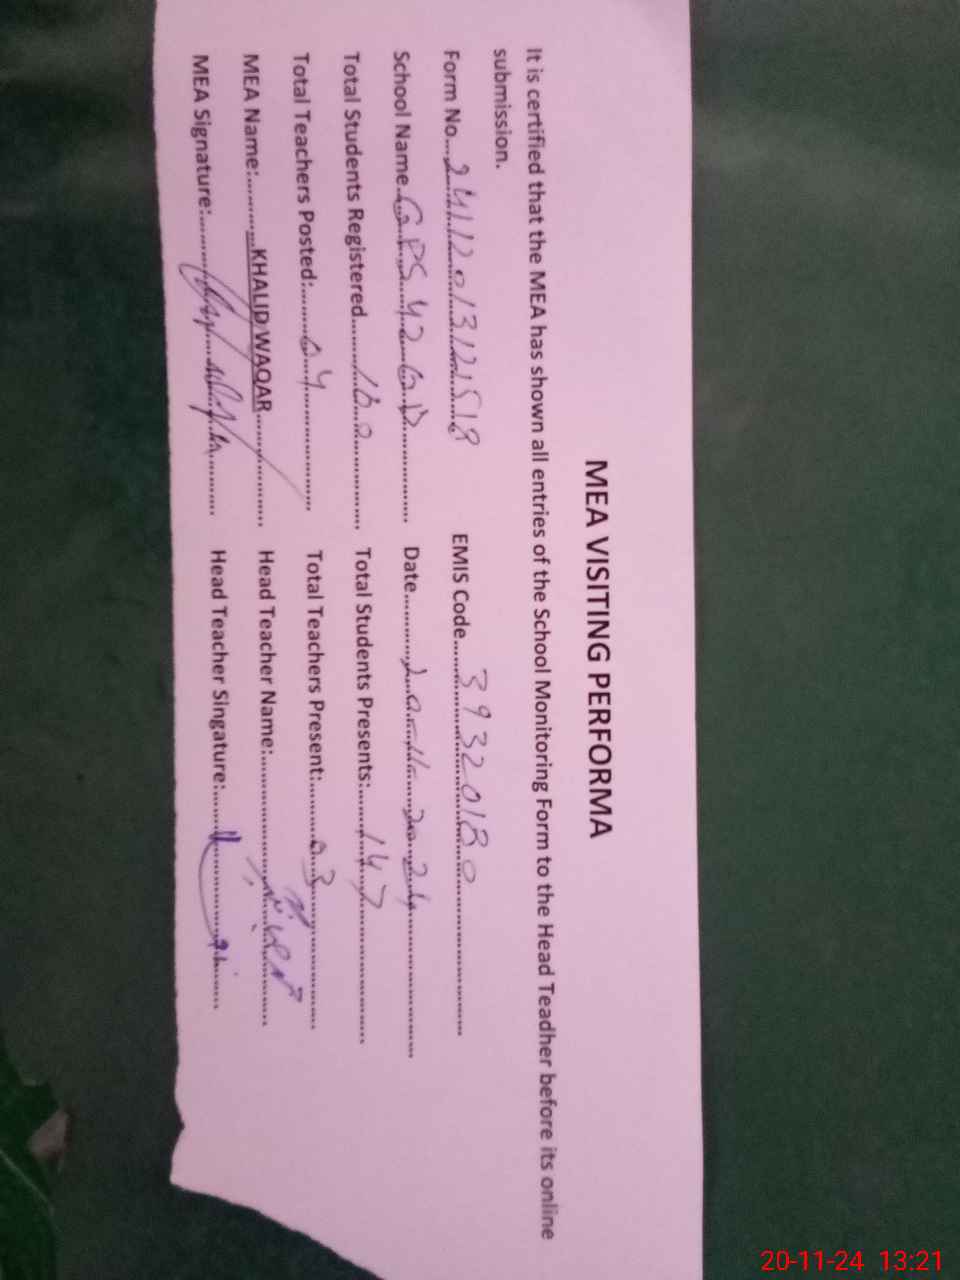 MEA VISITING PERFORMA
It is certified that the MEA has shown all entries of the School Monitoring Form to the Head Teadher before its online
submission.
Form No....24112013121518 EMIS Code....39320180
School Name.GPS 42 GD Date....20-11-2024
Total Students Registered....160 Total Students Presents:....147
Total Teachers Posted:....04 Total Teachers Present:....03
MEA Name:....KHALID WAQAR.... Head Teacher Name:....
MEA Signature:.... Head Teacher Singature:....
20-11-24 13:21